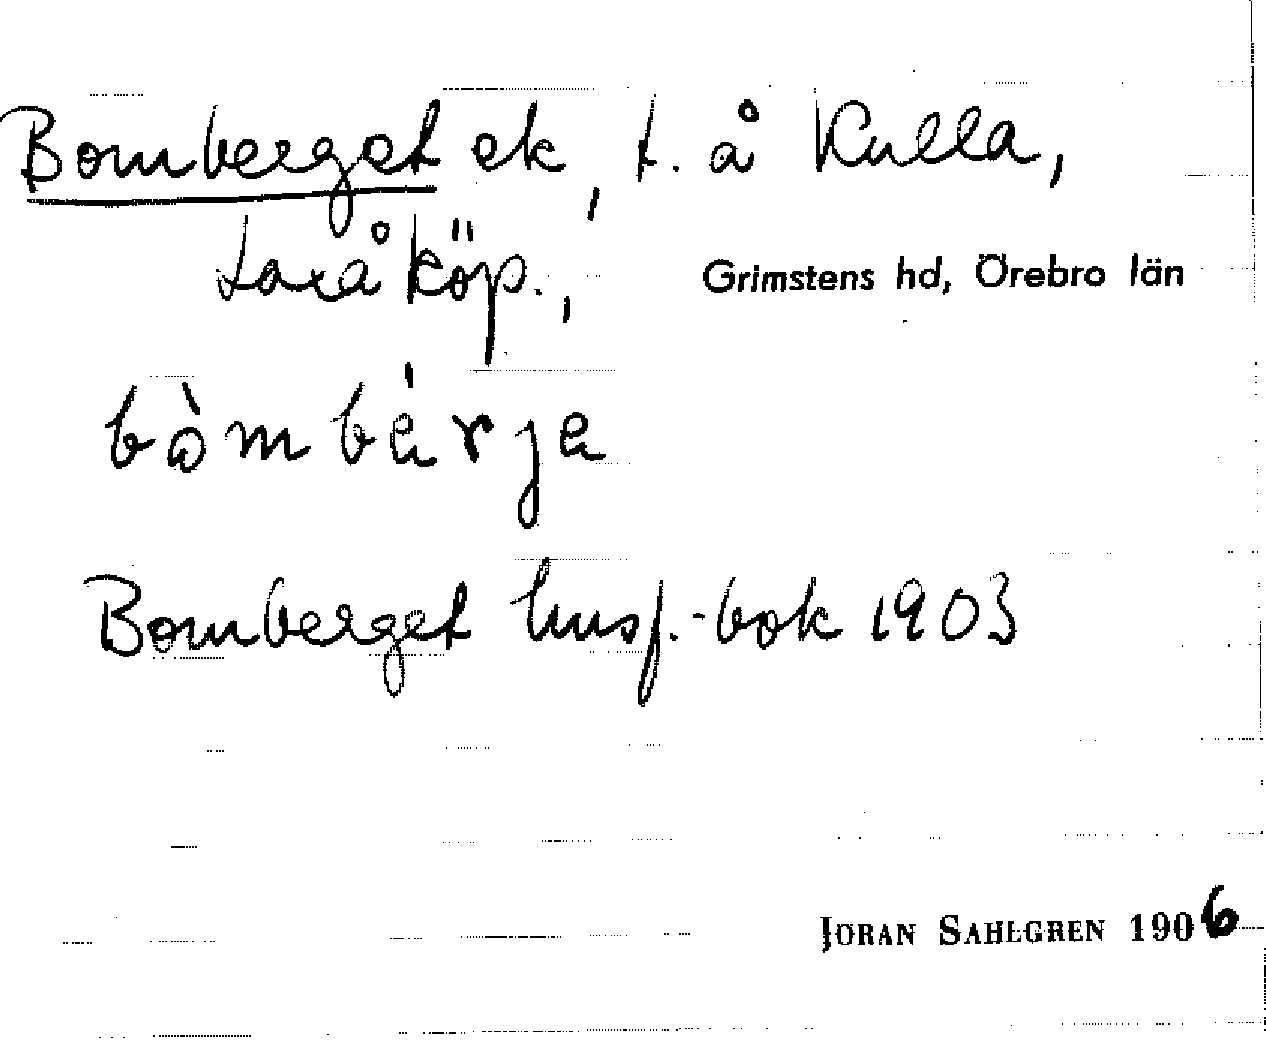 Bomberget ek, t. å Kulla,
Laxå köp., Grimstens hd, Örebro län
bòmbérje
Bomberget husf.-bok 1903
JÖRAN SAHLGREN 1906